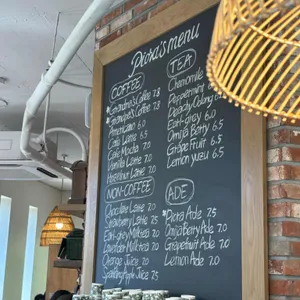 Piora's menu
COFFEE
*Grandma's Coffee 7.8
*Grandpa's Coffee 7.8
Americano 6.0
Cafe Latte 6.5
Cafe Mocha 7.0
Vanilla Latte 7.0
Hazelnut Latte 7.0
NON-COFFEE
Chocolate Latte 7.0
Strawberry Latte 7.5
Earl-grey Milk tea 7.0
Lavender Milk tea 7.0
Orange Juice 7.0
Sparkling Apple Juice 7.5
TEA
Chamomile
Peppermint
Peachy Oolong 6.0
Earl Grey 6.0
Omija Berry 6.5
Grape Fruit 6.5
Lemon yuzu 6.5
ADE
*Piora Ade 7.5
Omija Berry Ade 7.0
Grapefruit Ade 7.0
Lemon Ade 7.0